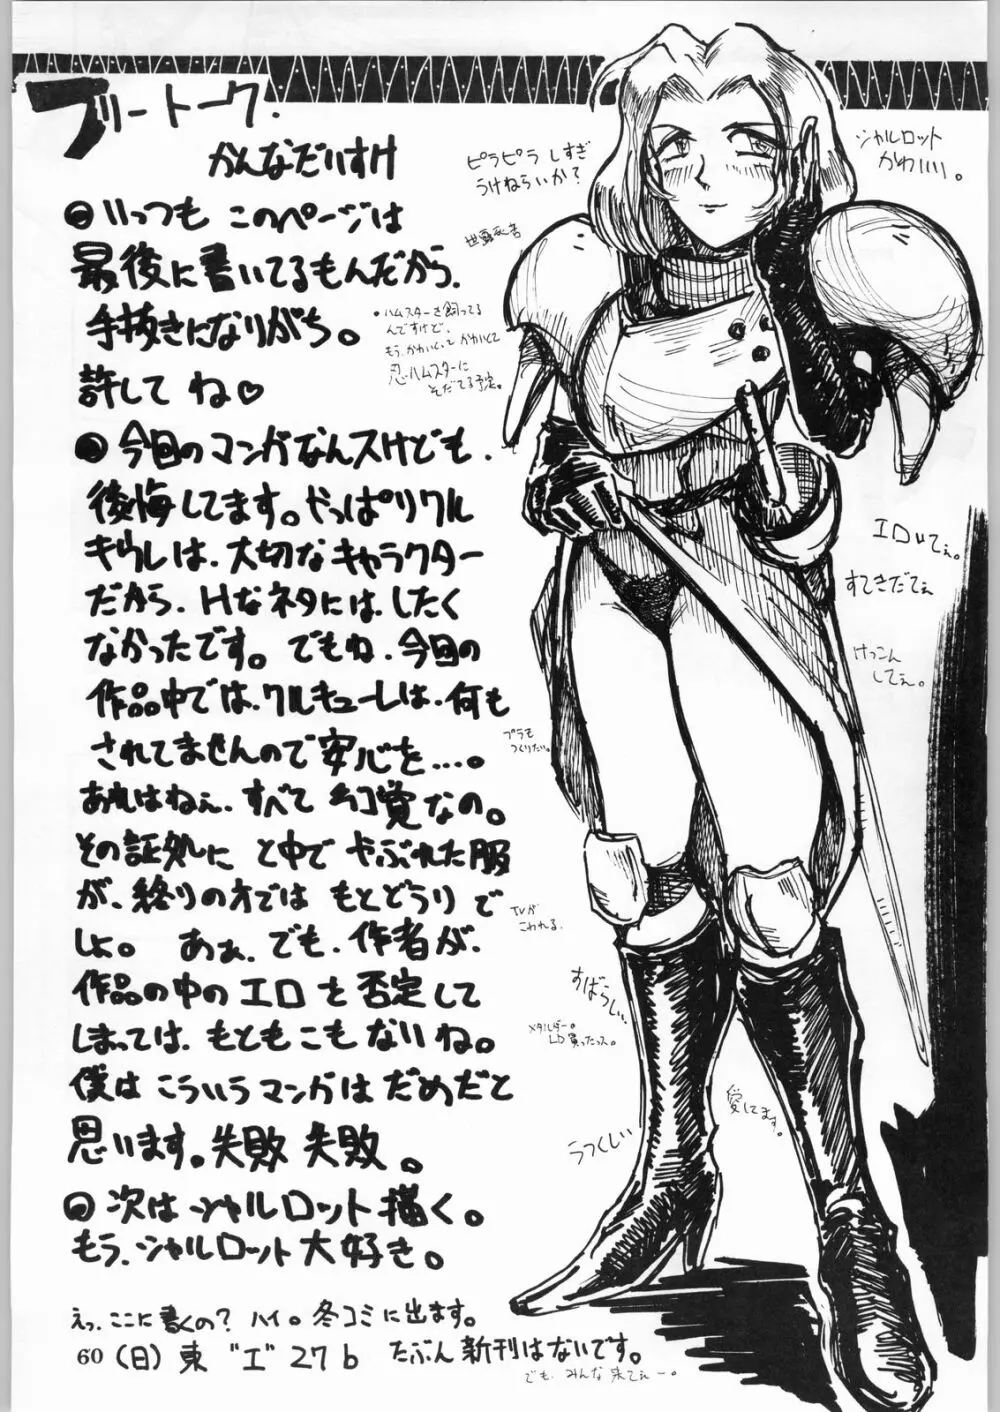 フリートーク.
かんなだいすけ
いっつも このページは
最後に書いてるもんだから、
手抜きになりがち。
許してね♡
今回のマンガなんスけども、
後悔してます。やっぱりワル
キウレは、大切なキャラクター
だから、Hなネタには、したく
なかったです。でもね、今回の
作品中では、ワルキューレは、何も
されてませんので安心を…。
あれはねぇ、すべて幻覚なの。
その証処に と中で やぶれた服
が、終りの方では もとどうりで
しょ。 あぁ、でも、作者が、
作品の中のエロを否定して
しまっては、もともこもないね。
僕は こういうマンガは だめだと
思います。失敗 失敗。
次は シャルロット描く。
もう、シャルロット大好き。
えっ、ここに書くの? ハイ。冬コミに出ます。
(日) 東 "エ" 27b たぶん新刊はないです。
でも、みんな来てぇー。
60
ピラピラ しすぎ
うけねらいか?
シャルロット
かわいい。
・ハムスターを飼ってる
んですけど、
もう、かわいくてかわいくて
忍・ハムスターに
そだてる予定。
エロいてぇ。
すてきだてぇ
けっこん
してぇ。
プラモ
つくりたい。
TVが
こわれる。
すばらしい、
メタルダー。
LD買ったっス。
愛してます。
うつくしい